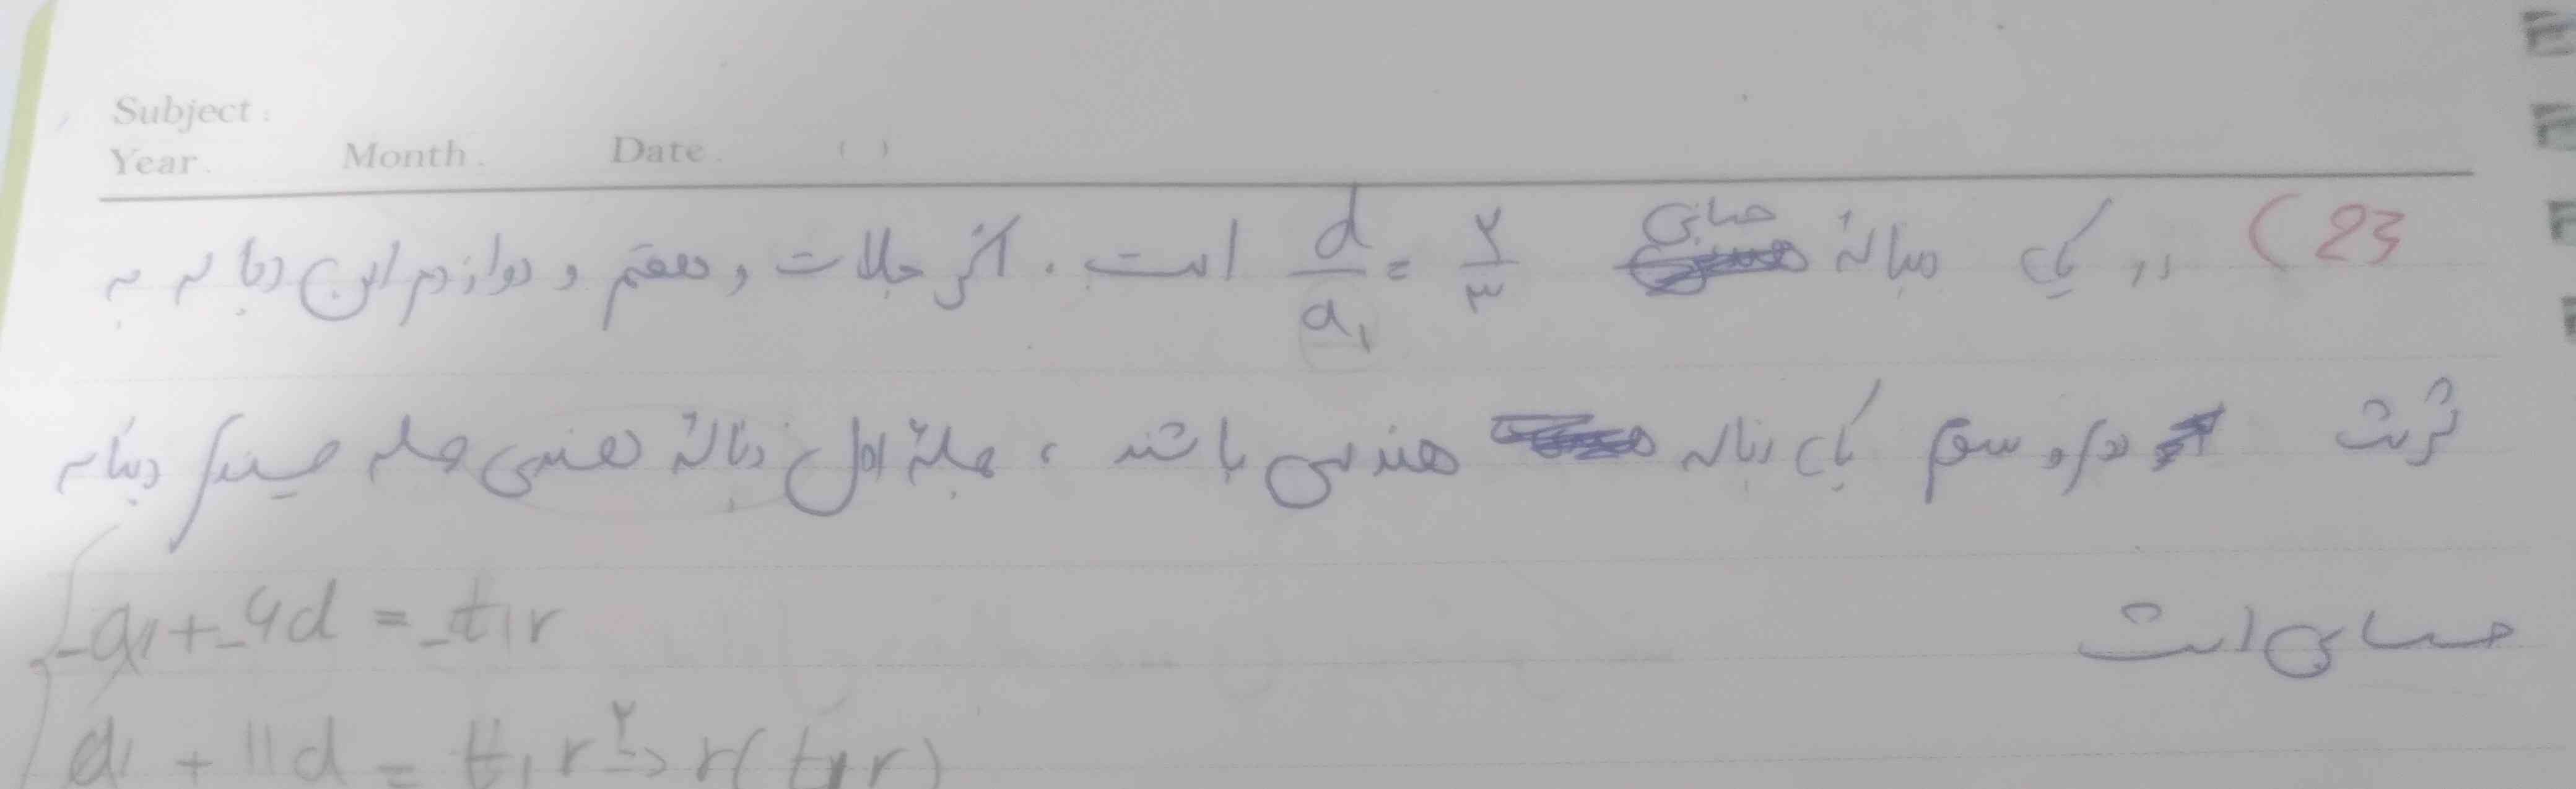 Subject :
Year . Month . Date . ( )
23) در یک دنباله حسابی ۲/۳ = d/a۱ است . اگر جملات هفتم و دوازدهم این دنباله به
ترتیب دوم و سوم یک دنباله هندسی باشند ، جملهٔ اول دنبالهٔ هندسی جمله چندم دنباله
حسابی است
a۱ + ۶d = t۱r
a۱ + ۱۱d = t۱r۲ → r(t۱r)